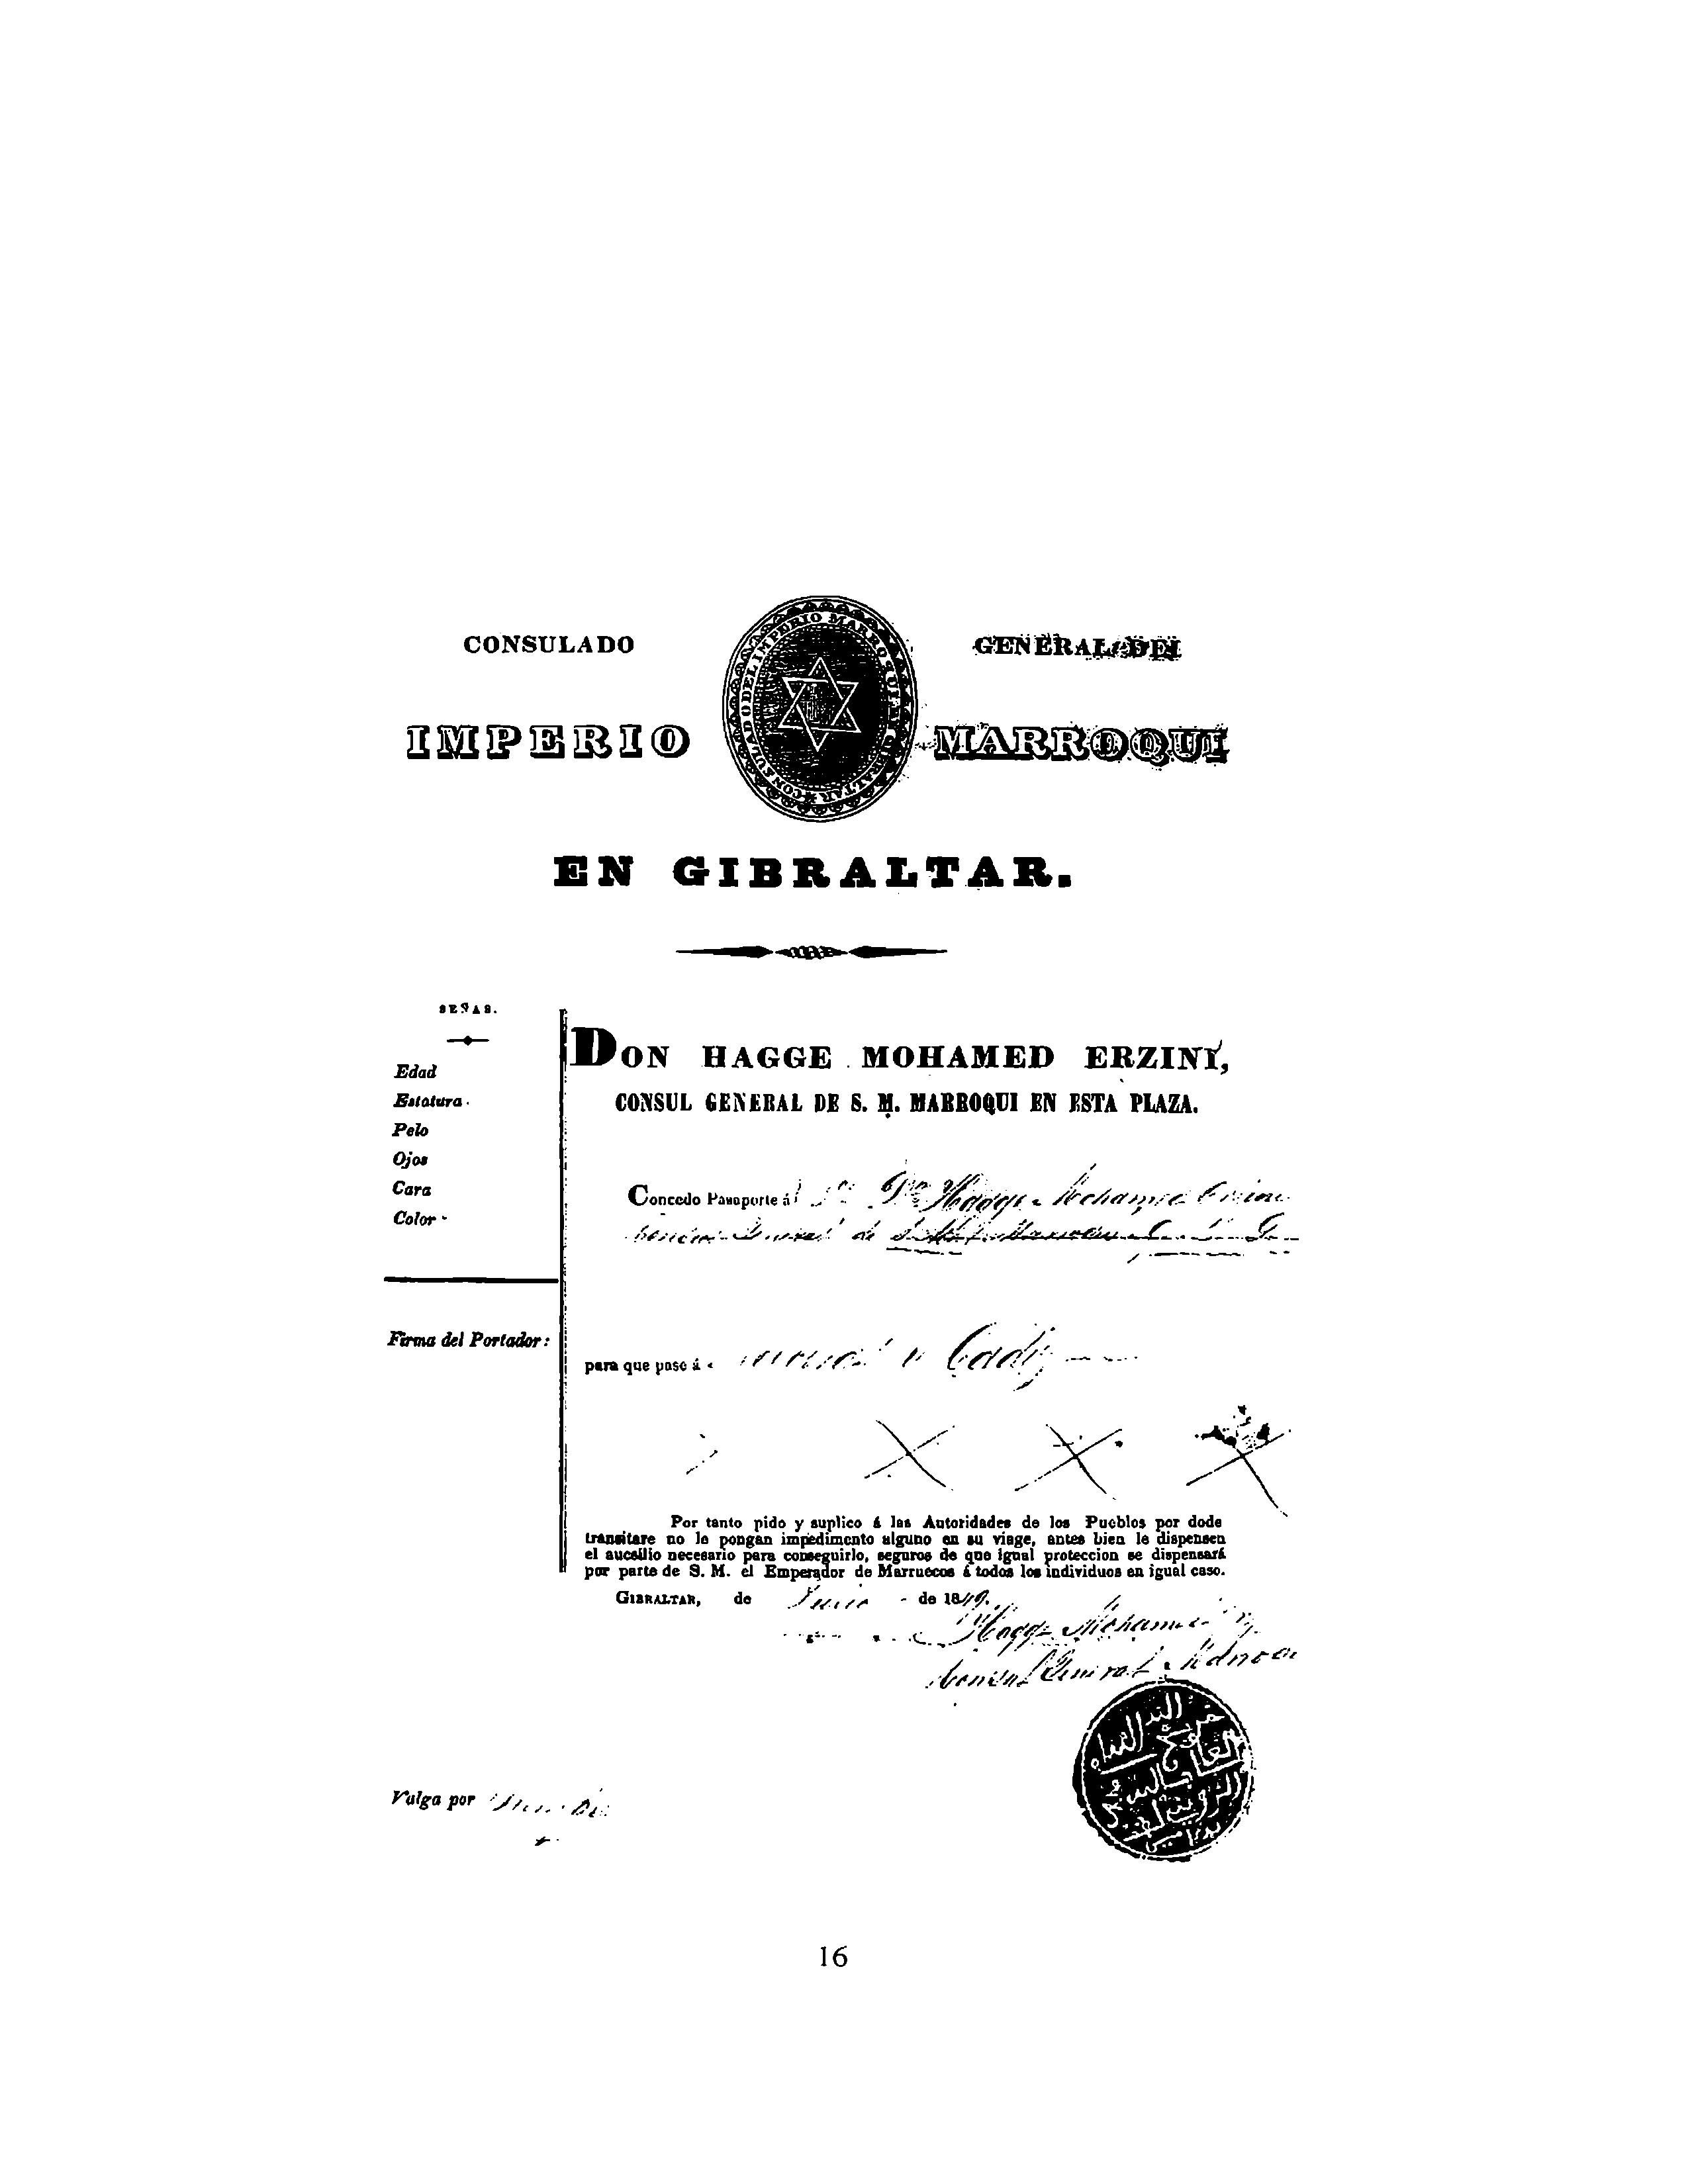 CONSULADO GENERAL DEL
CONSULADO DEL IMPERIO MARROQUI EN GIBRALTAR
IMPERIO MARROQUI
EN GIBRALTAR.
SEÑAS.
Edad
Estatura
Pelo
Ojos
Cara
Color
Firma del Portador:
DON HAGGE MOHAMED ERZINI,
CONSUL GENERAL DE S. M. MARROQUI EN ESTA PLAZA.
Concedo Pasaporte á Hagge Mohamed
General de
para que pase á Cadiz
Por tanto pido y suplico á las Autoridades de los Pueblos por dode
transitare no le pongan impedimento alguno en su viage, antes bien le dispensen
el aucsilio necesario para conseguirlo, seguros de que igual proteccion se dispensará
por parte de S. M. el Emperador de Marruecos á todos los individuos en igual caso.
GIBRALTAR, de Junio de 1849.
Hagge Mohamed
Consul General
Valga por
16